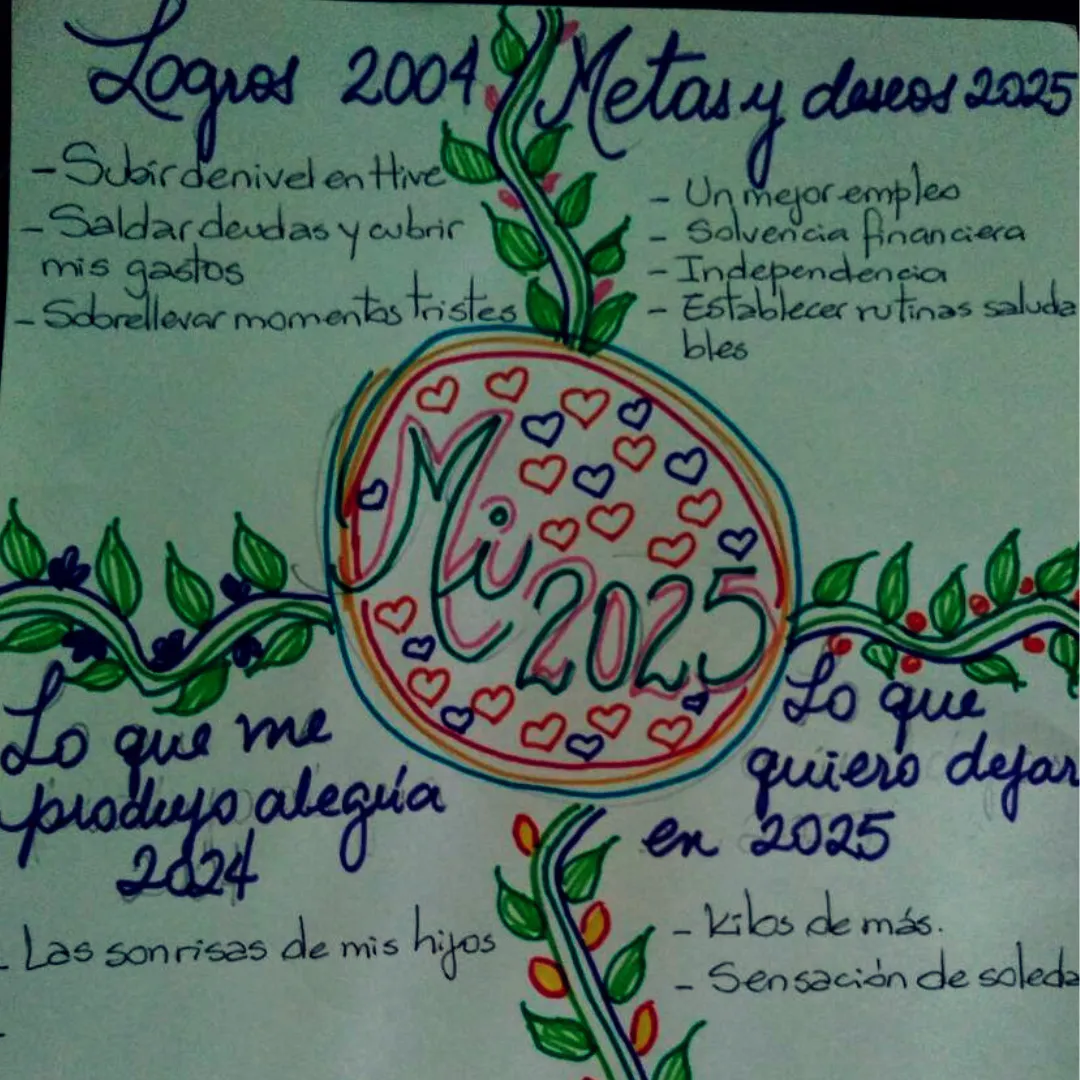 Logros 2004
- Subir de nivel en Hive
- Saldar deudas y cubrir
mis gastos
- Sobrellevar momentos tristes
Metas y deseos 2025
- Un mejor empleo
- Solvencia financiera
- Independencia
- Establecer rutinas saluda
bles
Mi
2025
Lo que me
produjo alegría
2024
- Las sonrisas de mis hijos
-
Lo que
quiero dejar
en 2025
- Kilos de más.
- Sensación de soleda